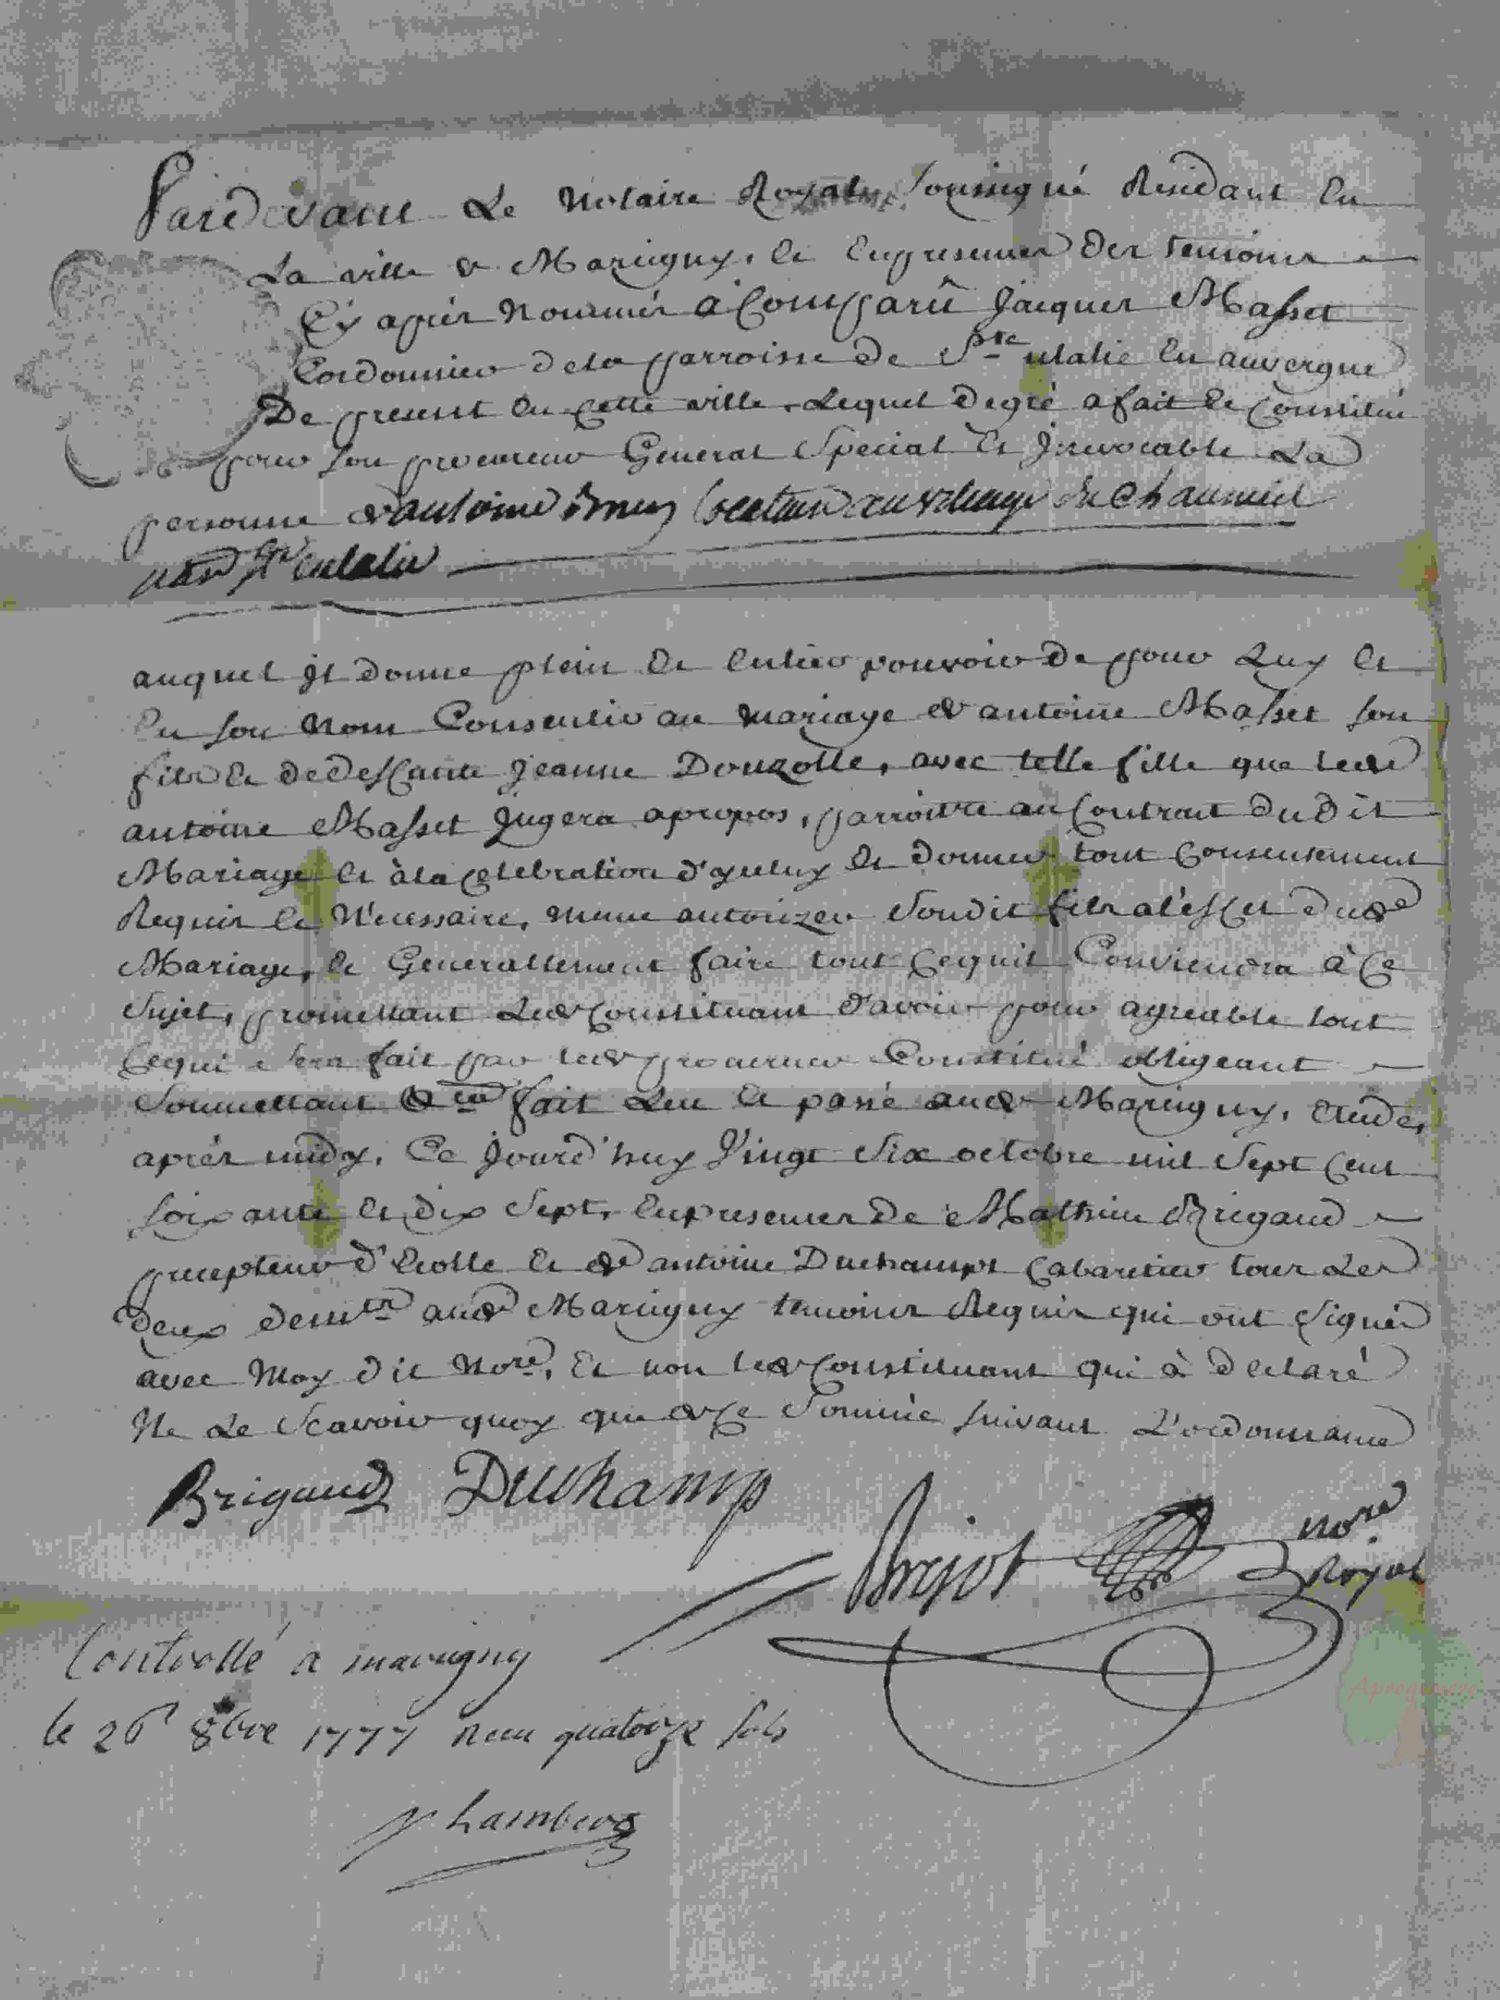 Pardevant Le Notaire Royal soussigné Residant En
La ville de Marcigny, Et En presence des temoins
Cy après Nommés à Comparû Jacques Masset
Cordonnier dela parroisse de Ste ulalie En auvergne
De present En cette ville, Lequel de gré a fait et constitué
pour son procureur General Special et Jrrevocable La
personne d'antoine au village du Chaumeil
parr Ste eulalie
auquel Jl donne plein et Entier pouvoir de pour Luy et
En son nom Consentir au mariage d'antoine Masset son
fils et de deffante Jeanne Douzolle, avec telle fille que led
antoine Masset Jugera apropos, parroitre au Contrat du dit
Mariage et à la Celebration d'yceluy et donner tout Consentement
Requis et Nécessaire, meme autorizer Son dit fils al'effet dud
Mariage, et Generallement faire tout Cequil Conviendra à Ce
Sujet, promettant Led Constituant d'avoir pour agreable tout
Cequi Sera fait par led procureur Constitué obligeant
Soumettant & fait Leu et passé aud Marcigny, Etude,
après midy, Ce Jourd'huy Vingt Six octobre mil Sept Cent
soixante et dix Sept, En presence de Mathieu Brigaud
precepteur d'Ecolle et de antoine Duchamps Cabaretier tous Les
deux demts aud Marcigny temoins Requis qui ont Signés
avec Moy dit Nore, Et non led Constituant qui à declaré
Ne Le Scavoir quoy que de Ce Sommé suivant L'ordonnance
Brigaud Duchamp
nore
Royal
Controllé a marcigny
le 26 8bre 1777 Recu quatorze sols
Lambert
Aprogemere